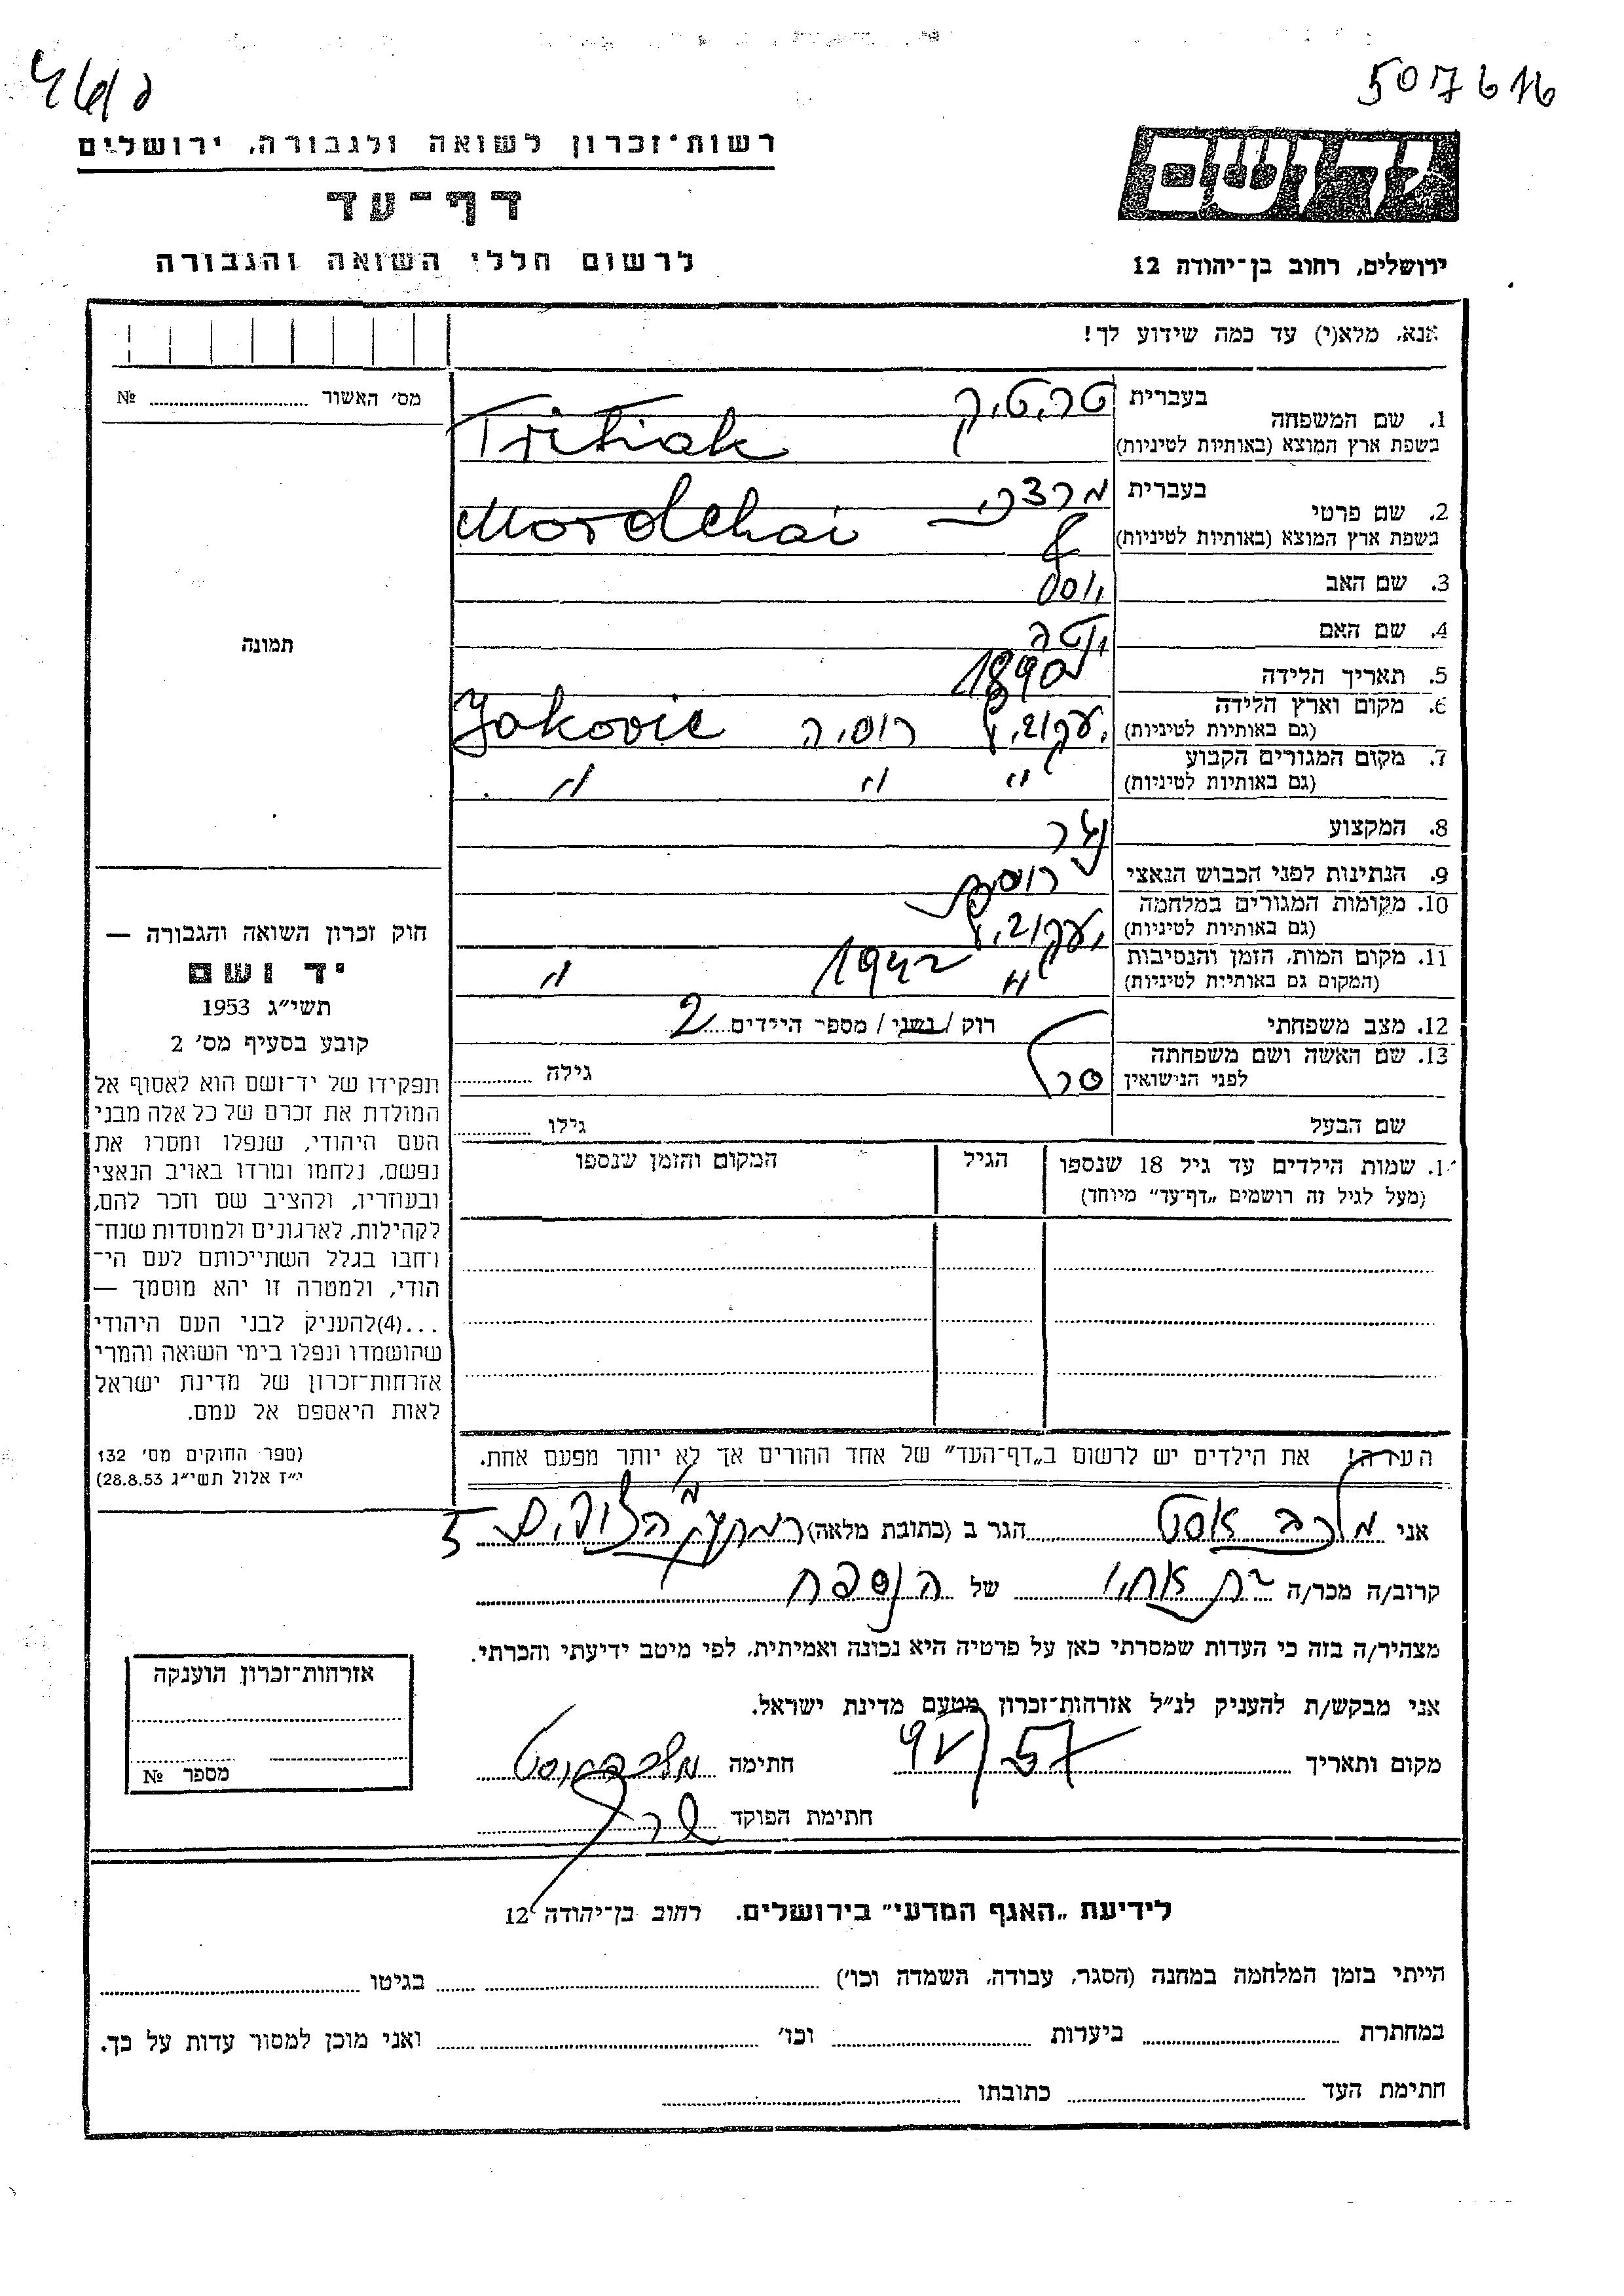 507616
רשות־זכרון לשואה ולגבורה, ירושלים
דף־עד
לרשום חללי השואה והגבורה
ידושם
ירושלים, רחוב בן־יהודה 12
אנא, מלא(י) עד כמה שידוע לך!
מס׳ האשור № 
1. שם המשפחה בעברית טרטיק
בשפת ארץ המוצא (באותיות לטיניות) Tritiak
2. שם פרטי בעברית מרדכי
בשפת ארץ המוצא (באותיות לטיניות) Mordehai
3. שם האב
4. שם האם
5. תאריך הלידה 1890
6. מקום וארץ הלידה (גם באותיות לטיניות) רוסיה Jakovic
7. מקום המגורים הקבוע (גם באותיות לטיניות) " " "
8. המקצוע
9. הנתינות לפני הכבוש הנאצי
10. מקומות המגורים במלחמה (גם באותיות לטיניות)
11. מקום המות, הזמן והנסיבות (המקום גם באותיות לטיניות) " 1942 "
12. מצב משפחתי רוק / נשוי / מספר הילדים 2
13. שם האשה ושם משפחתה לפני הנישואין גילה
שם הבעל גילו
1. שמות הילדים עד גיל 18 שנספו
(מעל לגיל זה רושמים „דף־עד" מיוחד)
הגיל
המקום והזמן שנספו
הערה! את הילדים יש לרשום ב„דף־העד" של אחד ההורים אך לא יותר מפעם אחת.
תמונה
חוק זכרון השואה והגבורה —
יד ושם
תשי״ג 1953
קובע בסעיף מס׳ 2
תפקידו של יד־ושם הוא לאסוף אל
המולדת את זכרם של כל אלה מבני
העם היהודי, שנפלו ומסרו את
נפשם, נלחמו ומרדו באויב הנאצי
ובעוזריו, ולהציב שם וזכר להם,
לקהילות, לארגונים ולמוסדות שנח־
רחבו בגלל השתייכותם לעם הי־
הודי, ולמטרה זו יהא מוסמך —
...(4)להעניק לבני העם היהודי
שהושמדו ונפלו בימי השואה והמרי
אזרחות־זכרון של מדינת ישראל
לאות היאספם אל עמם.
(ספר החוקים מס׳ 132
י״ז אלול תשי״ג 28.8.53)
אני הגר ב (כתובת מלאה)
קרוב/ה מכר/ה בת אחיו של הנספה
מצהיר/ה בזה כי העדות שמסרתי כאן על פרטיה היא נכונה ואמיתית, לפי מיטב ידיעתי והכרתי.
אני מבקש/ת להעניק לנ״ל אזרחות־זכרון מטעם מדינת ישראל.
מקום ותאריך חתימה
חתימת הפוקד
אזרחות־זכרון הוענקה
מספר №
לידיעת „האגף המדעי" בירושלים. רחוב בן־יהודה 12
הייתי בזמן המלחמה במחנה (הסגר, עבודה, השמדה וכו׳) בגיטו
במחתרת ביערות וכו׳ ואני מוכן למסור עדות על כך.
חתימת העד כתובתו